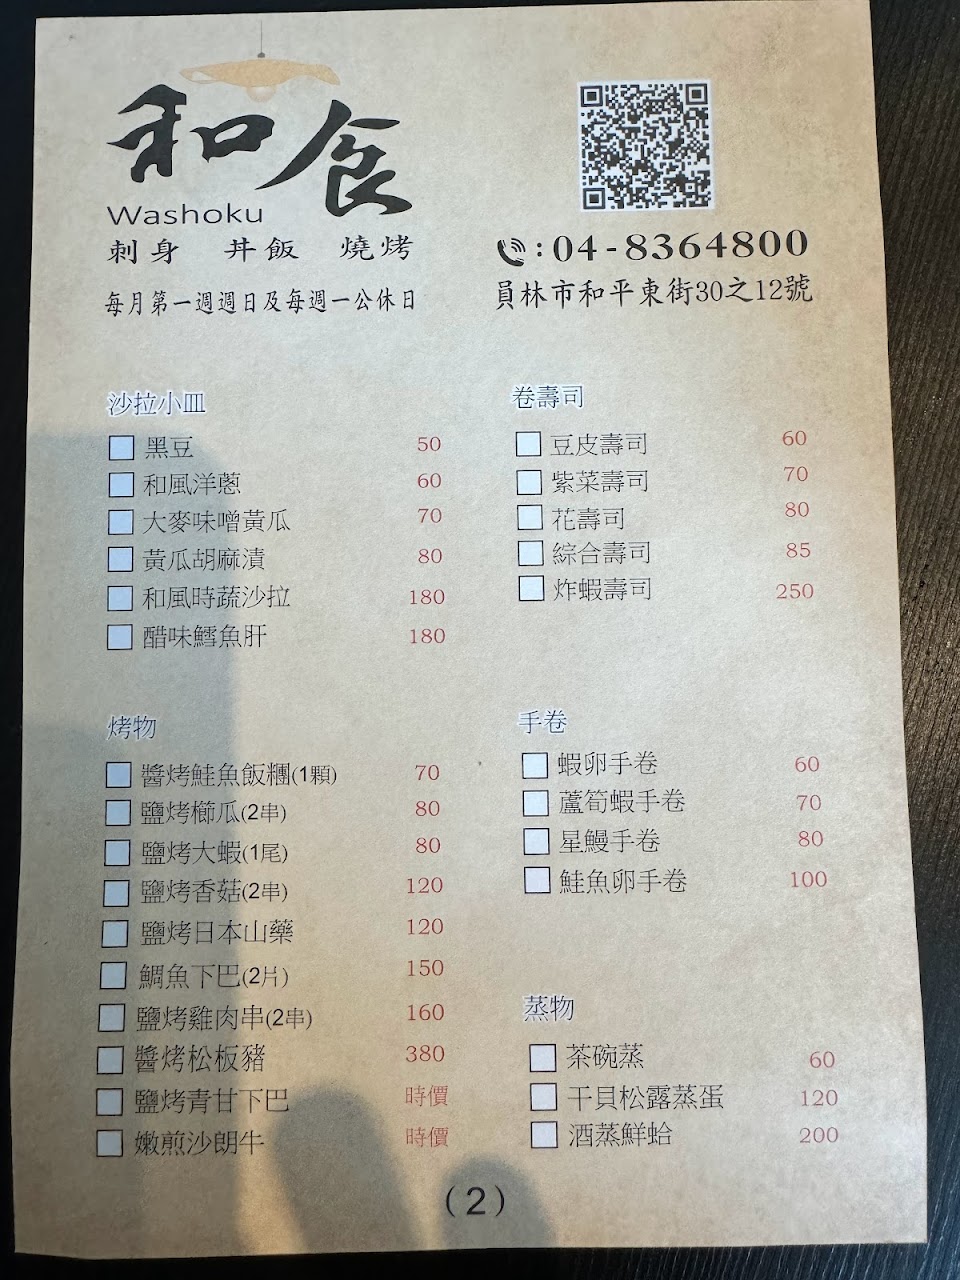 和食
Washoku
刺身 丼飯 燒烤
每月第一週週日及每週一公休日
:04-8364800
員林市和平東街30之12號
沙拉小皿
黑豆 50
和風洋蔥 60
大麥味噌黃瓜 70
黃瓜胡麻漬 80
和風時蔬沙拉 180
醋味鱈魚肝 180
烤物
醬烤鮭魚飯糰(1顆) 70
鹽烤櫛瓜(2串) 80
鹽烤大蝦(1尾) 80
鹽烤香菇(2串) 120
鹽烤日本山藥 120
鯛魚下巴(2片) 150
鹽烤雞肉串(2串) 160
醬烤松板豬 380
鹽烤青甘下巴 時價
嫩煎沙朗牛 時價
卷壽司
豆皮壽司 60
紫菜壽司 70
花壽司 80
綜合壽司 85
炸蝦壽司 250
手卷
蝦卵手卷 60
蘆筍蝦手卷 70
星鰻手卷 80
鮭魚卵手卷 100
蒸物
茶碗蒸 60
干貝松露蒸蛋 120
酒蒸鮮蛤 200
(2)